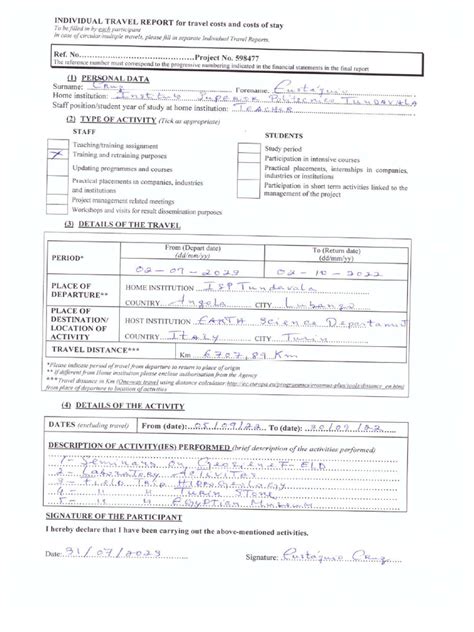 INDIVIDUAL TRAVEL REPORT for travel costs and costs of stay
To be filled in by each participant
In case of circular/multiple travels, please fill in separate Individual Travel Reports.
Ref. No.............................Project No. 598477
The reference number must correspond to the progressive numbering indicated in the financial statements in the final report
(1) PERSONAL DATA
Surname: Cruz Forename: Eustáquio
Home institution: Instituto Superior Politécnico Tundavala
Staff position/student year of study at home institution: TEACHER
(2) TYPE OF ACTIVITY (Tick as appropriate)
STAFF
STUDENTS
Teaching/training assignment
Training and retraining purposes
Updating programmes and courses
Practical placements in companies, industries
and institutions
Project management related meetings
Workshops and visits for result dissemination purposes
Study period
Participation in intensive courses
Practical placements, internships in companies,
industries or institutions
Participation in short term activities linked to the
management of the project
(3) DETAILS OF THE TRAVEL
PERIOD*
From (Depart date)
(dd/mm/yy)
To (Return date)
(dd/mm/yy)
02-10-2022
PLACE OF
DEPARTURE**
HOME INSTITUTION ISP Tundavala
COUNTRY Angola CITY Lubango
PLACE OF
DESTINATION/
LOCATION OF
ACTIVITY
HOST INSTITUTION EARTH Science
COUNTRY ITALY CITY Turin
TRAVEL DISTANCE***
Km 6707,89 Km
*Please indicate period of travel from departure to return to place of origin
** If different from Home institution please enclose authorisation from the Agency
***Travel distance in Km (One-way travel) using distance calculator
from place of departure to location of activities
(4) DETAILS OF THE ACTIVITY
DATES (excluding travel) From (date): 05/09/22 To (date): 30/09/22
DESCRIPTION OF ACTIVITY(IES) PERFORMED (brief description of the activities performed)
1- Seminars on
2- Laboratory
3- FIELD Trip Hidrogeology
4- " " Turin Stone
5- " " Egyptian Museum
SIGNATURE OF THE PARTICIPANT
I hereby declare that I have been carrying out the above-mentioned activities.
Date: 31/07/2023 Signature: Eustáquio Cruz